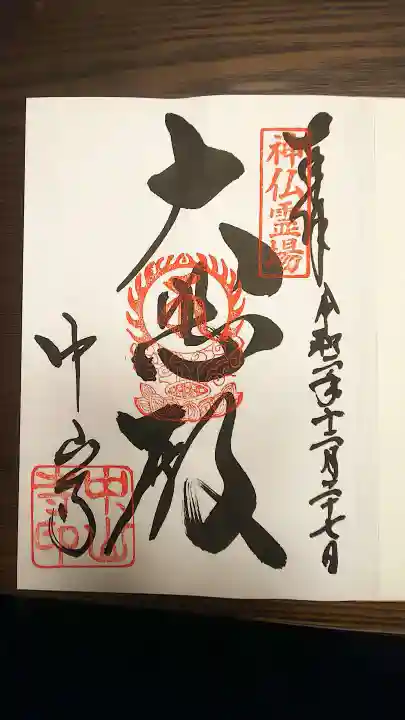 神仏霊場
奉拝 令和 年十二月二十七日
大悲殿
中山寺
中山寺印